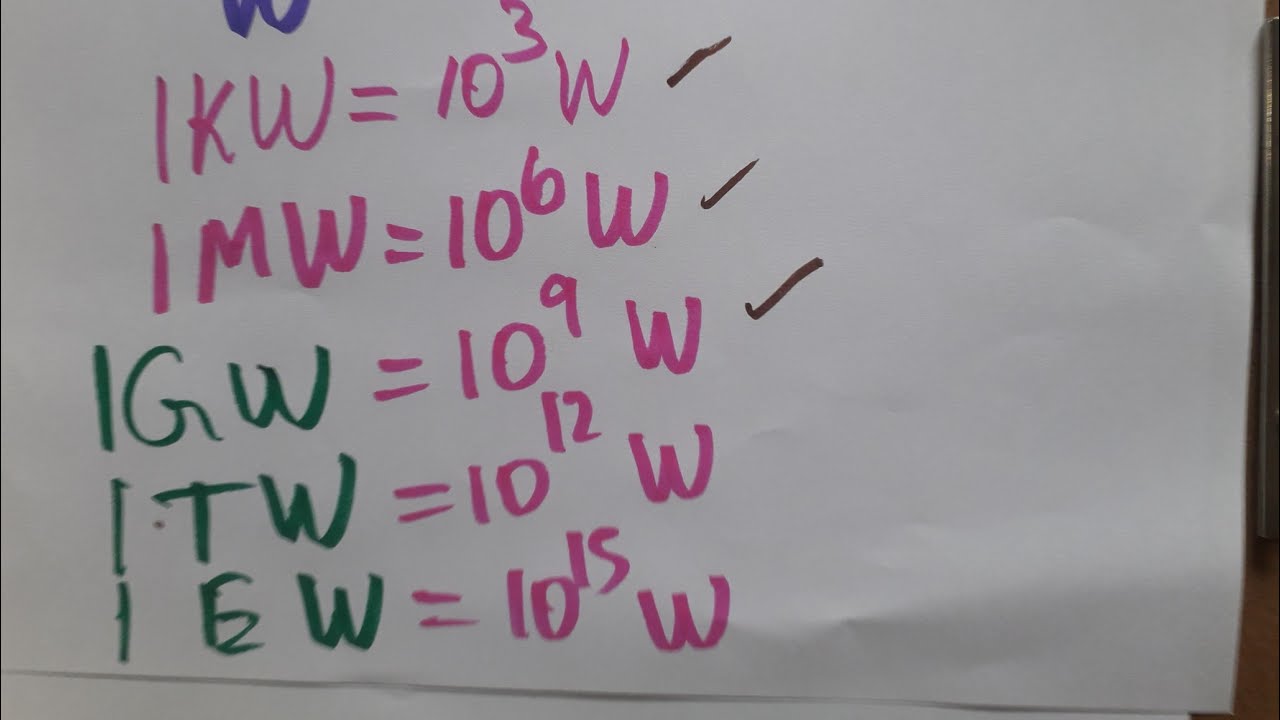 W
1KW = 10³W ✓
1MW = 10⁶W ✓
1GW = 10⁹ W ✓
1TW = 10¹² W
1 EW = 10¹⁵ W